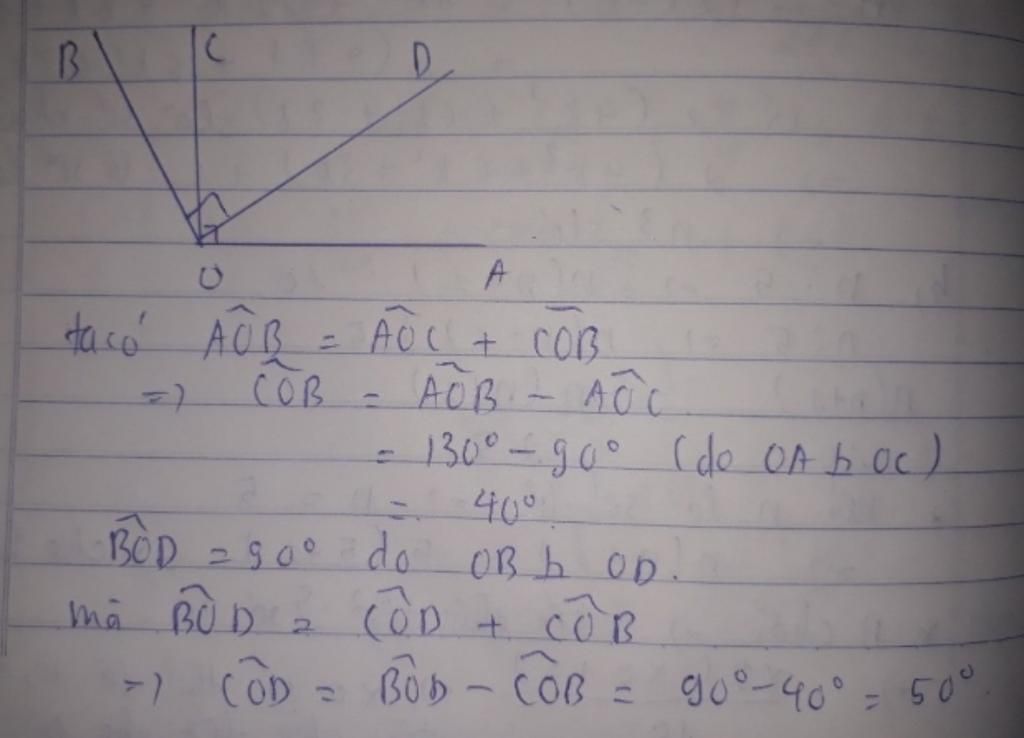 B C D
O A
ta có AÔB = AÔC + CÔB
=> CÔB = AÔB - AÔC
= 130° - 90° (do OA ⊥ OC)
= 40°
BÔD = 90° do OB ⊥ OD.
mà BÔD = CÔD + CÔB
=> CÔD = BÔD - CÔB = 90° - 40° = 50°.